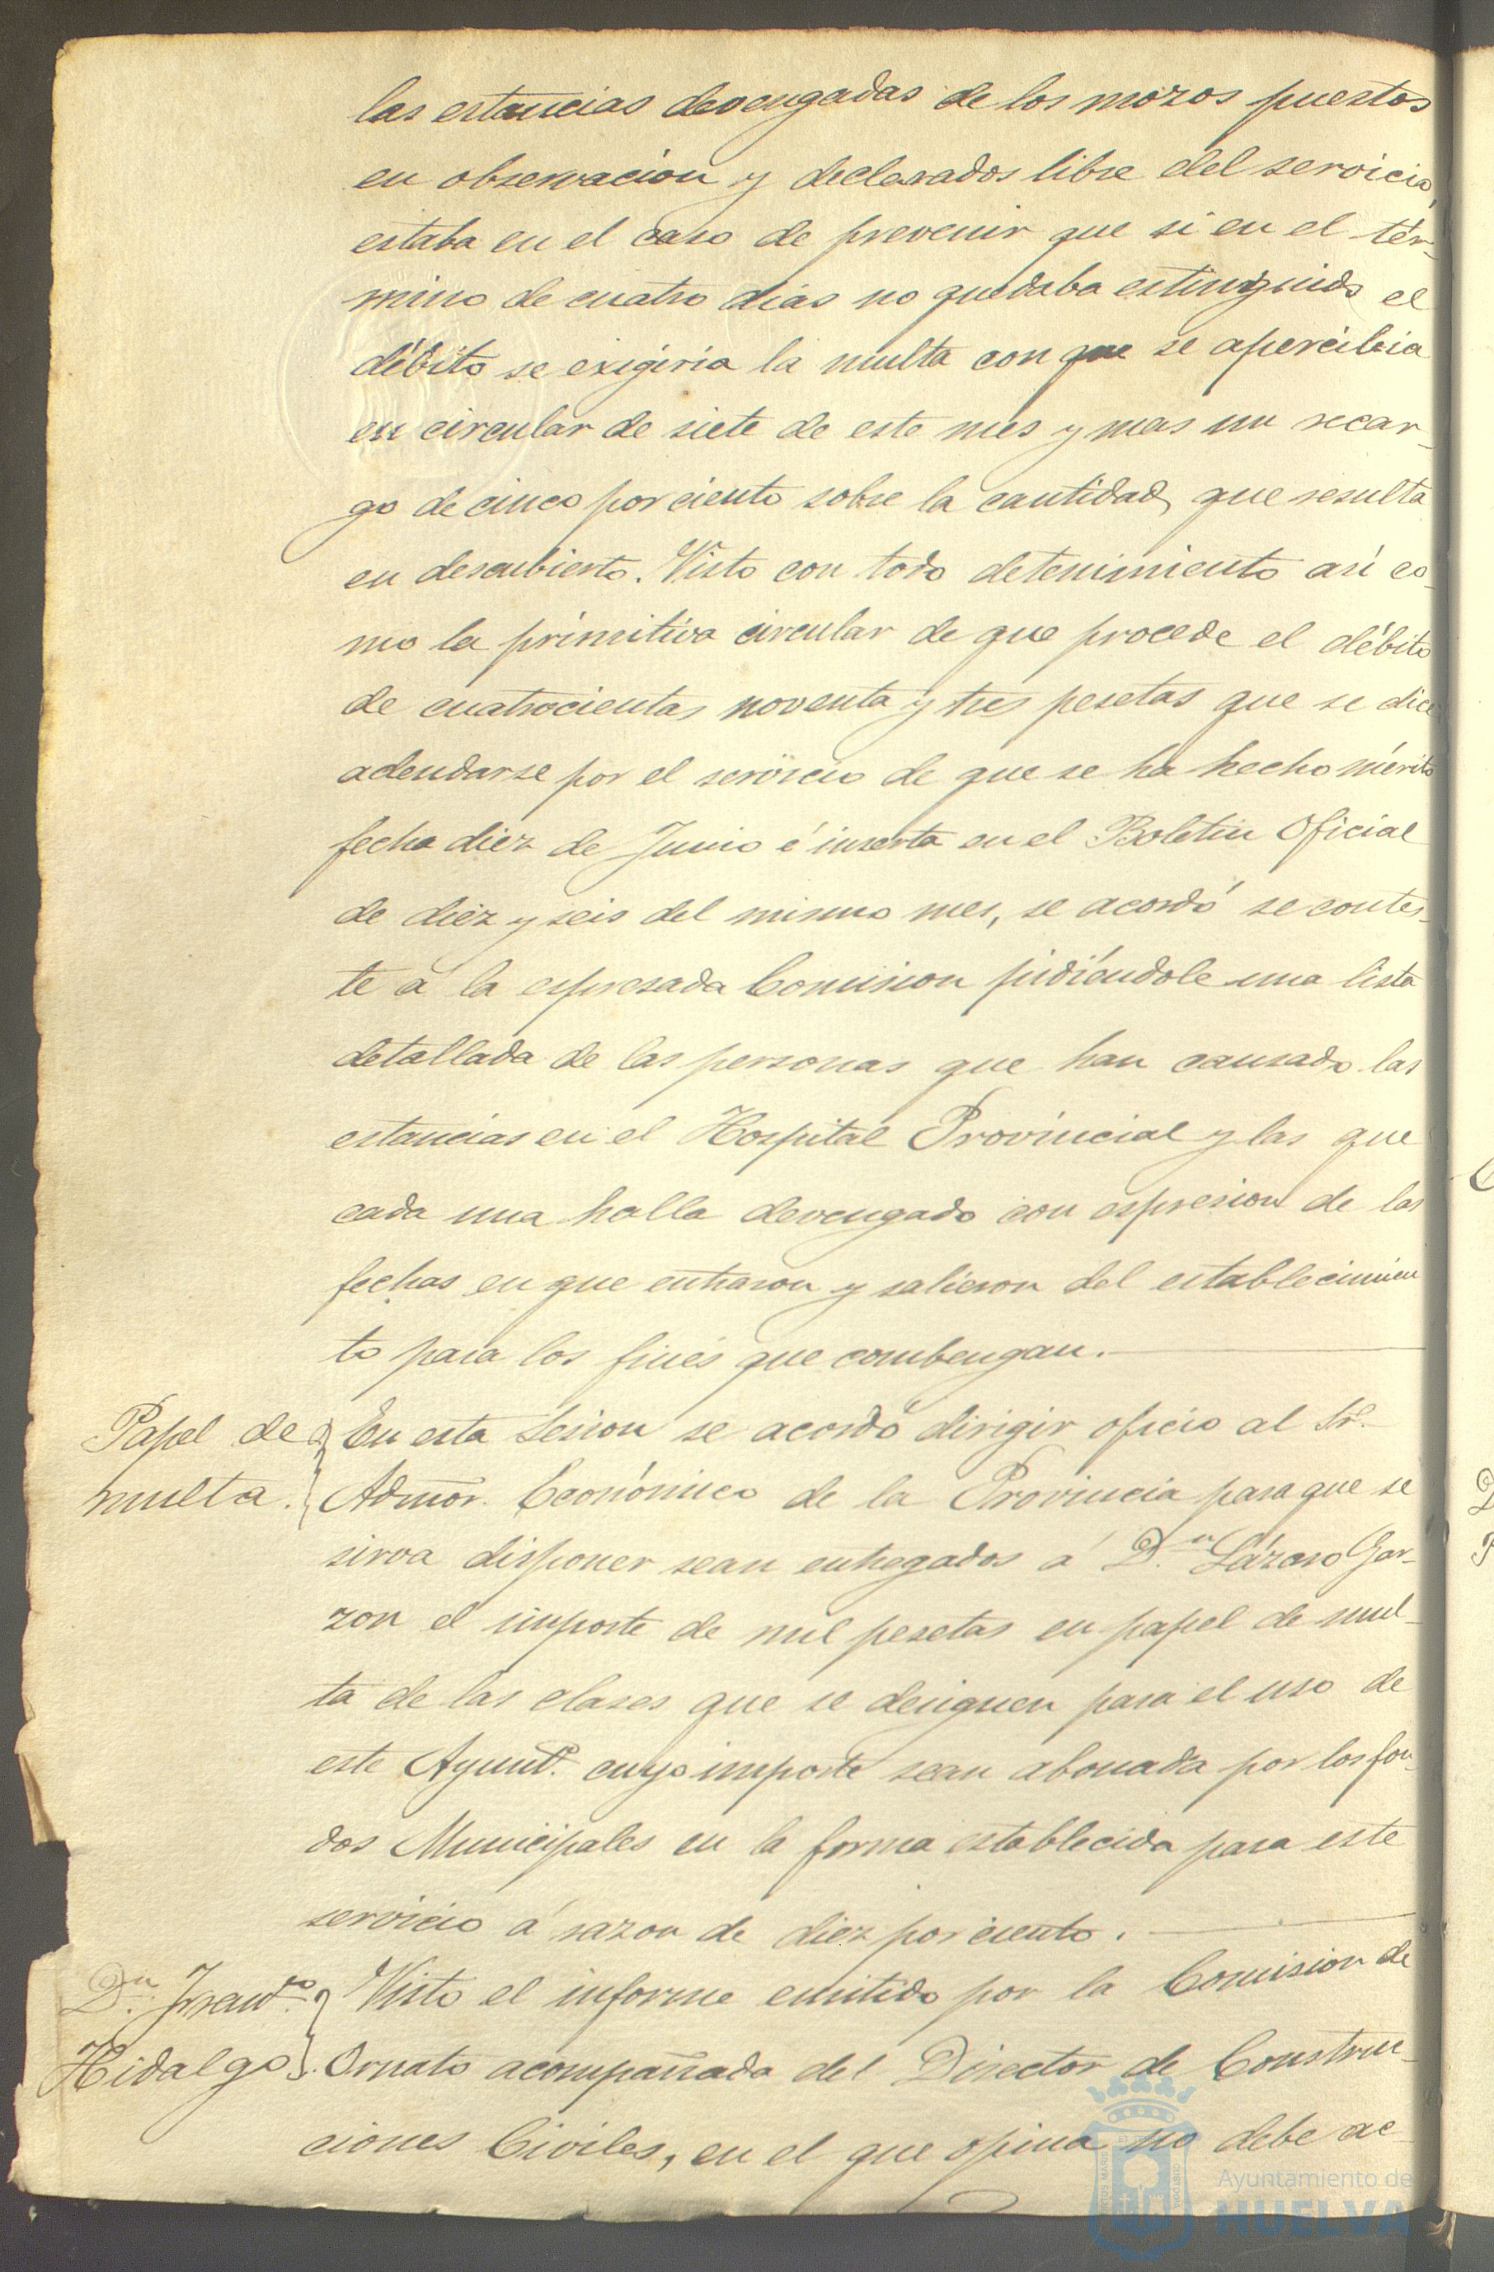 las estancias devengadas de los mozos puestos
en observacion y declarados libre del servicio,
estaba en el caso de prevenir que si en el tér-
mino de cuatro dias no quedaba estinguido el
débito se exigiria la multa con que se apercibia
en circular de siete de este mes y mas un recar-
go de cinco por ciento sobre la cantidad que resulta
en descubierto. Visto con todo detenimiento así co-
mo la primitiva circular de que procede el débito
de cuatrocientas noventa y tres pesetas que se dice
adeudarse por el servicio de que se ha hecho mérito
fecha diez de Junio é inserta en el Boletin Oficial
de diez y seis del mismo mes, se acordó se contes-
te á la espresada Comision pidiéndole una lista
detallada de las personas que han causado las
estancias en el Hospital Provincial y las que
cada una halla devengado con espresion de las
fechas en que entraron y salieron del establecimien
to para los fines que combengan.
Papel de
multa.
En esta Sesion se acordó dirigir oficio al Sr.
Admor. Económico de la Provincia para que se
sirva disponer sean entregados á D.n Lázaro Gar-
zon el importe de mil pesetas en papel de mul-
ta de las clases que se designen para el uso de
este Ayunt.o cuyo importe sean abonada por los fon-
dos Municipales en la forma establecida para este
servicio á razon de diez por ciento.
D.n Franc.co
Hidalgo.
Visto el informe emitido por la Comision de
Ornato acompañada del Director de Construc-
ciones Civiles, en el que opina no debe ac-
Ayuntamiento de
HUELVA